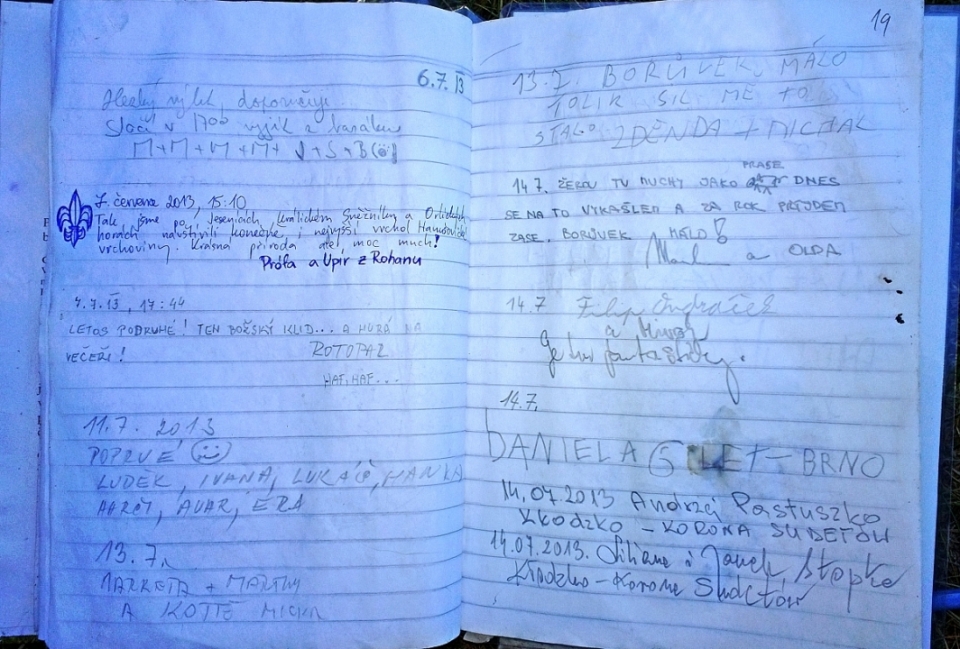 6.7. 13
Hezký výlet, doporučuji
Stačí v 1700 vyjít z
M+M+M+M+ J+S+B
7. června 2013, 15:10
Tak jsme po Jeseníkách, Králickém Sněžníku a Orlických
horách navštívili konečně i nejvyšší vrchol Hanušovické
vrchoviny. Krásná příroda ale moc much!
Próťa a Upír z Rohanu
7.7.13, 17:44
LETOS PODRUHÉ! TEN BOŽSKÝ KLID... A HURÁ NA
VEČEŘI!
ROTOPAZ
HAF, HAF...
11.7. 2013
POPRVÉ
LUDĚK, IVANA, LUKÁŠ, HANKA
ERA
13.7.
MARKÉTA + MARTIN
A KOTĚ MICKA
19
13.7 BORŮVEK MÁLO
TOLIK SIL MĚ TO
STÁLO ZDENDA + MICHAL
14 7. ŽEROU TU MUCHY JAKO PRASE DNES
SE NA TO VYKAŠLEM A ZA ROK PŘIJDEM
ZASE. BORŮVEK MÁLO!
a OLDA
14.7 Filip Ondráček
a
Je tu fantasticky.
14.7.
DANIELA 6 LET - BRNO
14.07.2013 Andrzej Pastuszko
Kłodzko - KORONA SUDETÓW
14.07.2013. Liliana i Janek Stopka
Kłodzko - Korona Sudetów